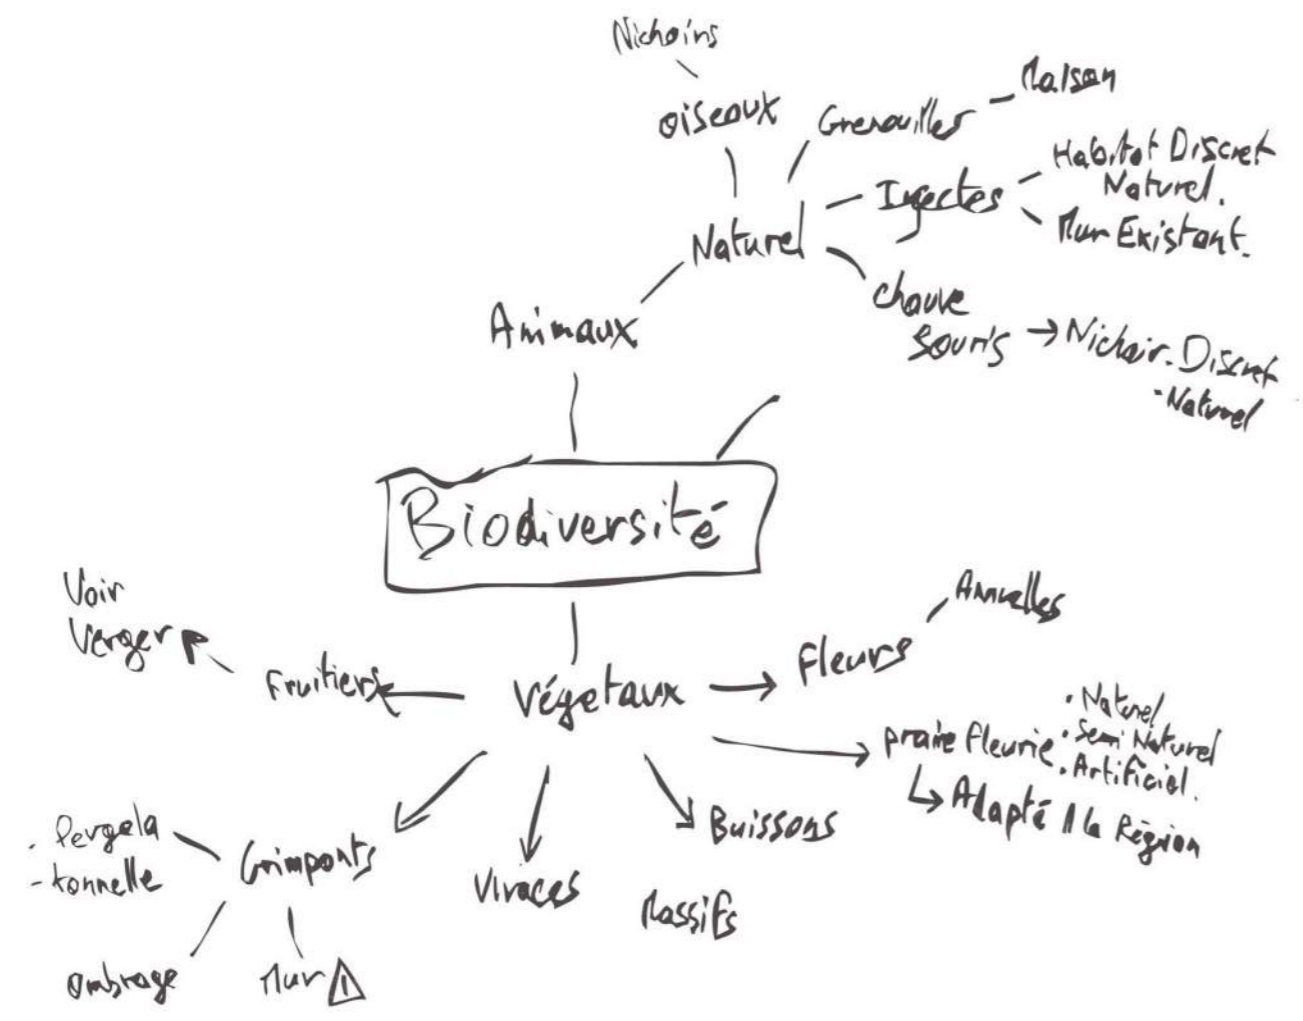 Nichoirs
oiseaux
Grenouilles
Maison
Insectes
Habitat Discret
Naturel.
Mur Existant.
Naturel
chauve
souris
Nichoir. Discret
- Naturel
Animaux
Biodiversité
Voir
Verger
Fruitiers
Végetaux
Fleurs
Annuelles
prairie fleurie
. Naturel
. Semi Naturel
. Artificiel.
Adapté A la Région
Buissons
Massifs
Vivaces
Grimpants
. Pergola
- tonnelle
ombrage
Mur